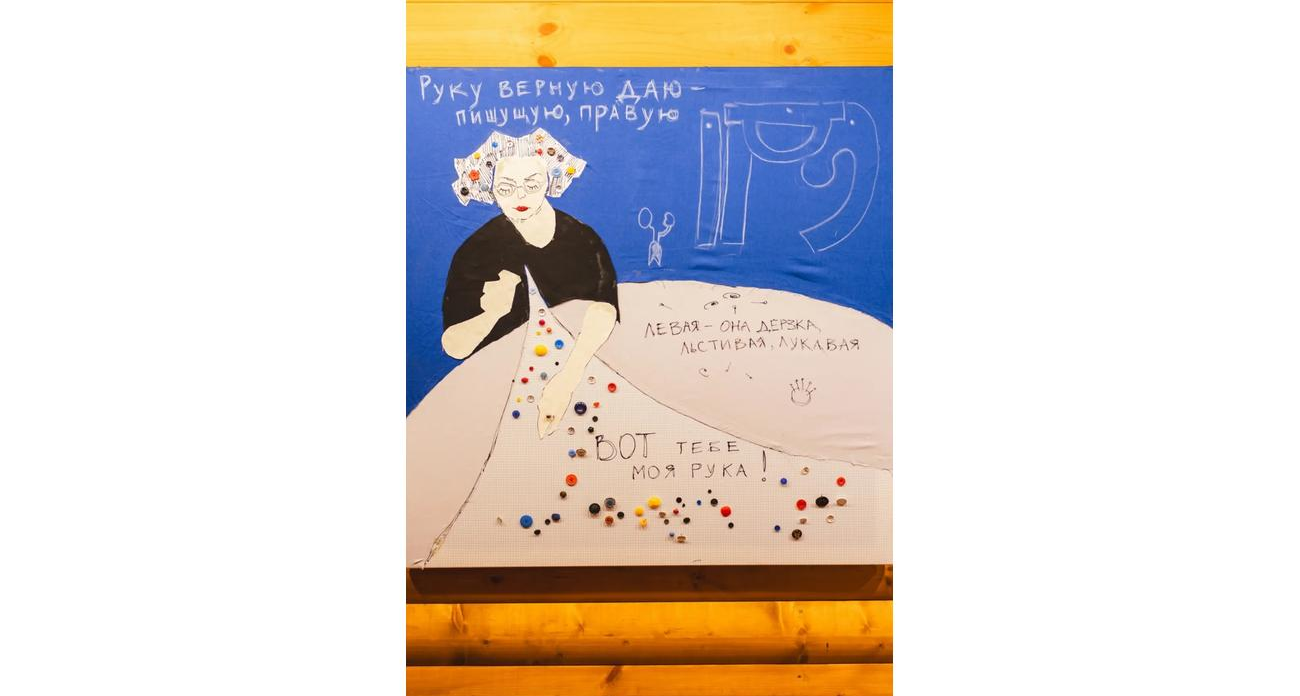 Руку верную даю –
пишущую, правую
левая – она дерзка,
льстивая, лукавая
Вот тебе
моя рука!